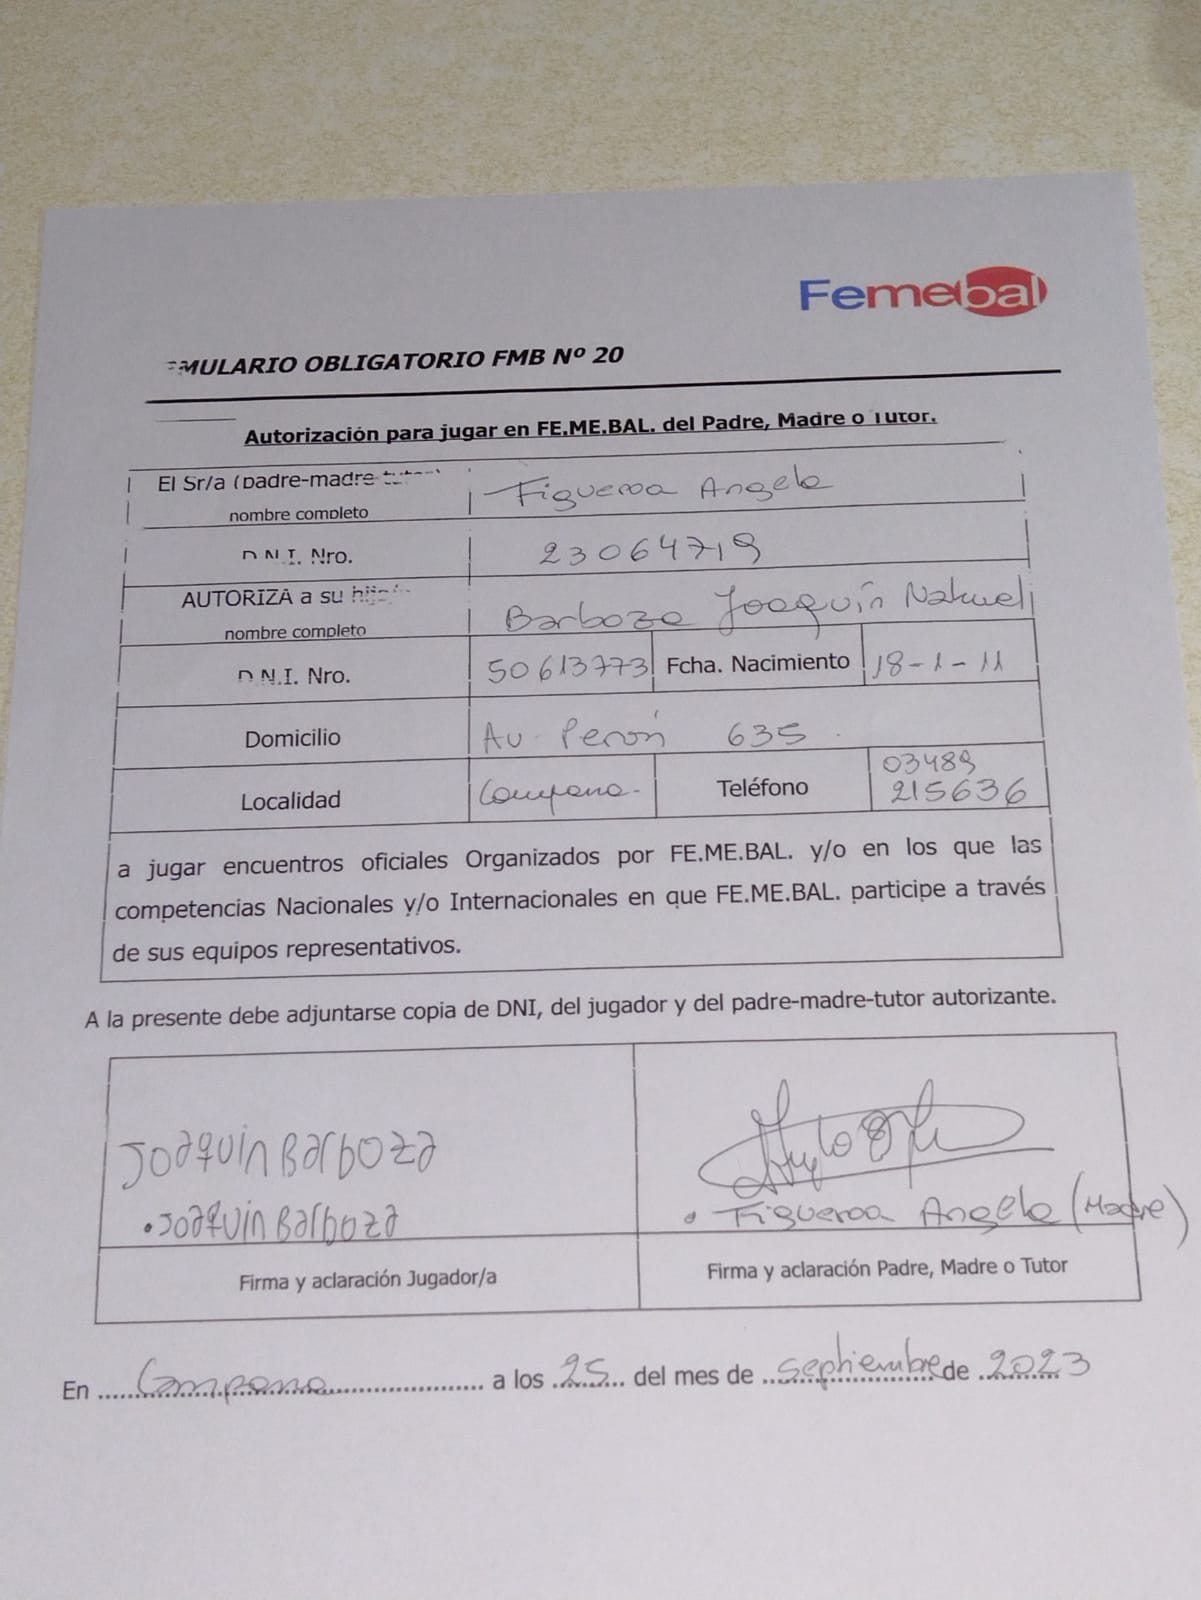 Femebal
MULARIO OBLIGATORIO FMB Nº 20
Autorización para jugar en FE.ME.BAL. del Padre, Madre o Tutor.
El Sr/a (padre-madre-tutor)
nombre completo
Figueroa Angela
D.N.I. Nro.
23064719
AUTORIZA a su
nombre completo
Barboza Joaquín Nahuel
D.N.I. Nro.
50613773
Fcha. Nacimiento
18-1-11
Domicilio
Av. Perón 635
Localidad
Campana.
Teléfono
03489
215636
a jugar encuentros oficiales Organizados por FE.ME.BAL. y/o en los que las
competencias Nacionales y/o Internacionales en que FE.ME.BAL. participe a través
de sus equipos representativos.
A la presente debe adjuntarse copia de DNI, del jugador y del padre-madre-tutor autorizante.
Joaquin Barboza
• Joaquin Barboza
• Figueroa Angela (Madre)
Firma y aclaración Jugador/a
Firma y aclaración Padre, Madre o Tutor
En Campana a los 25 del mes de septiembre de 2023